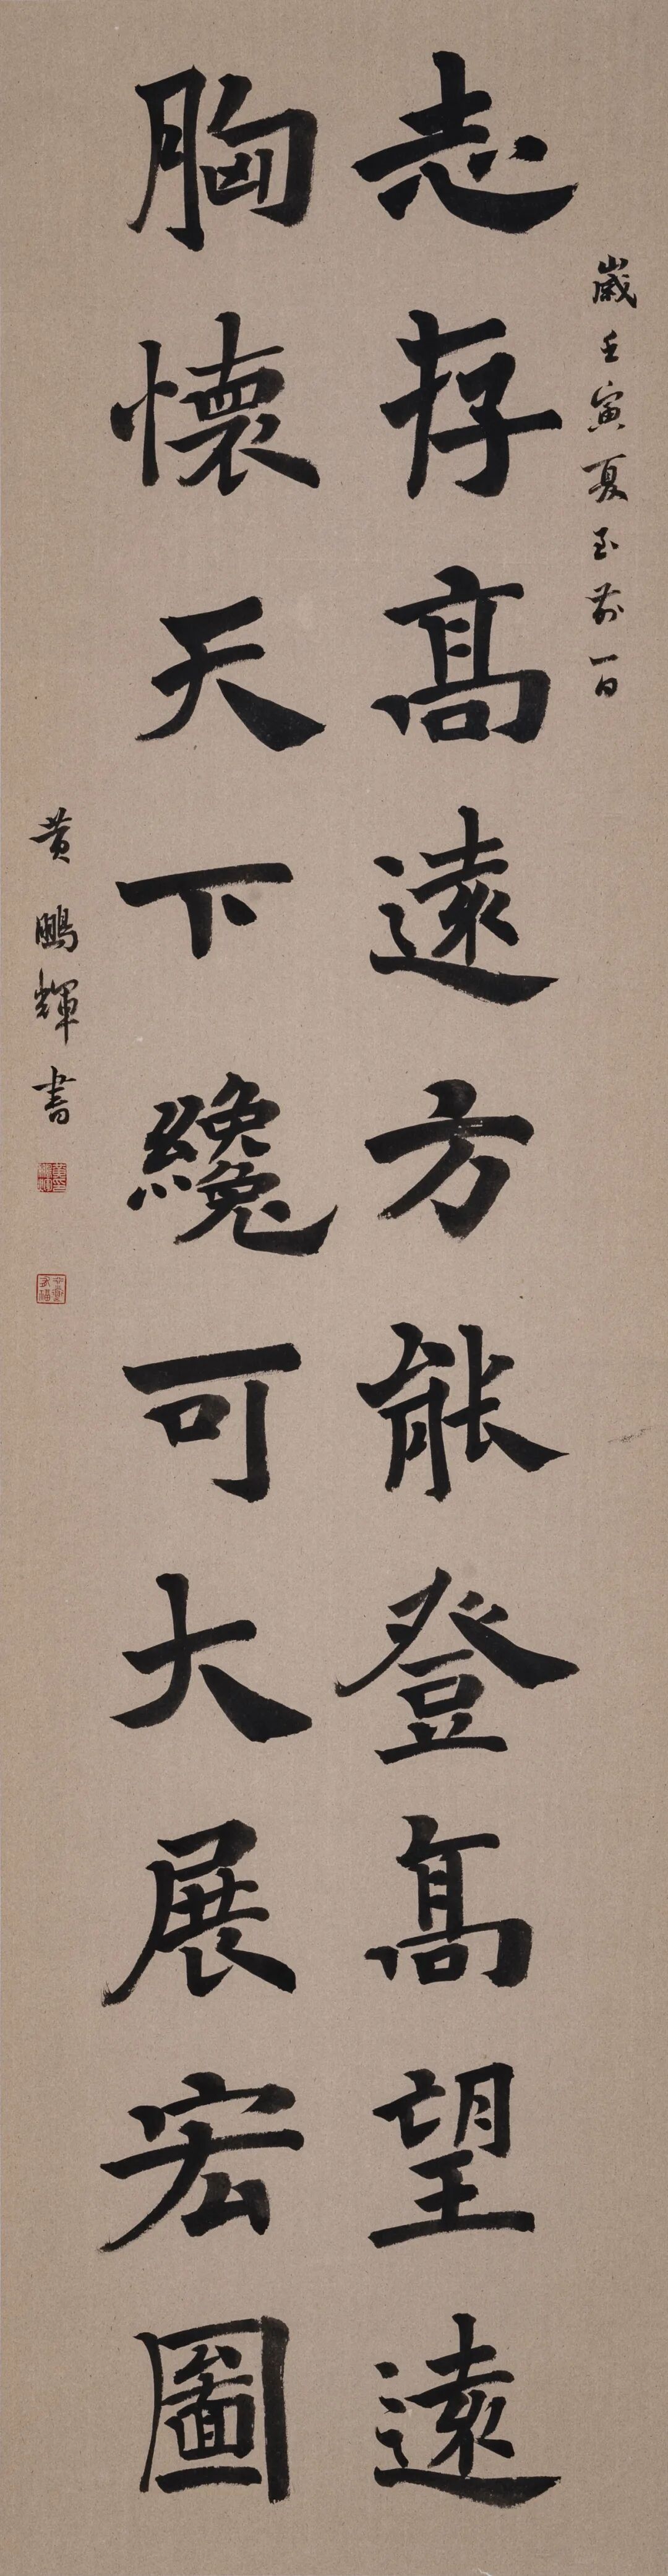 歲壬寅夏至前一日
志存高遠方能登高望遠
胸懷天下纔可大展宏圖
黃鵬輝書